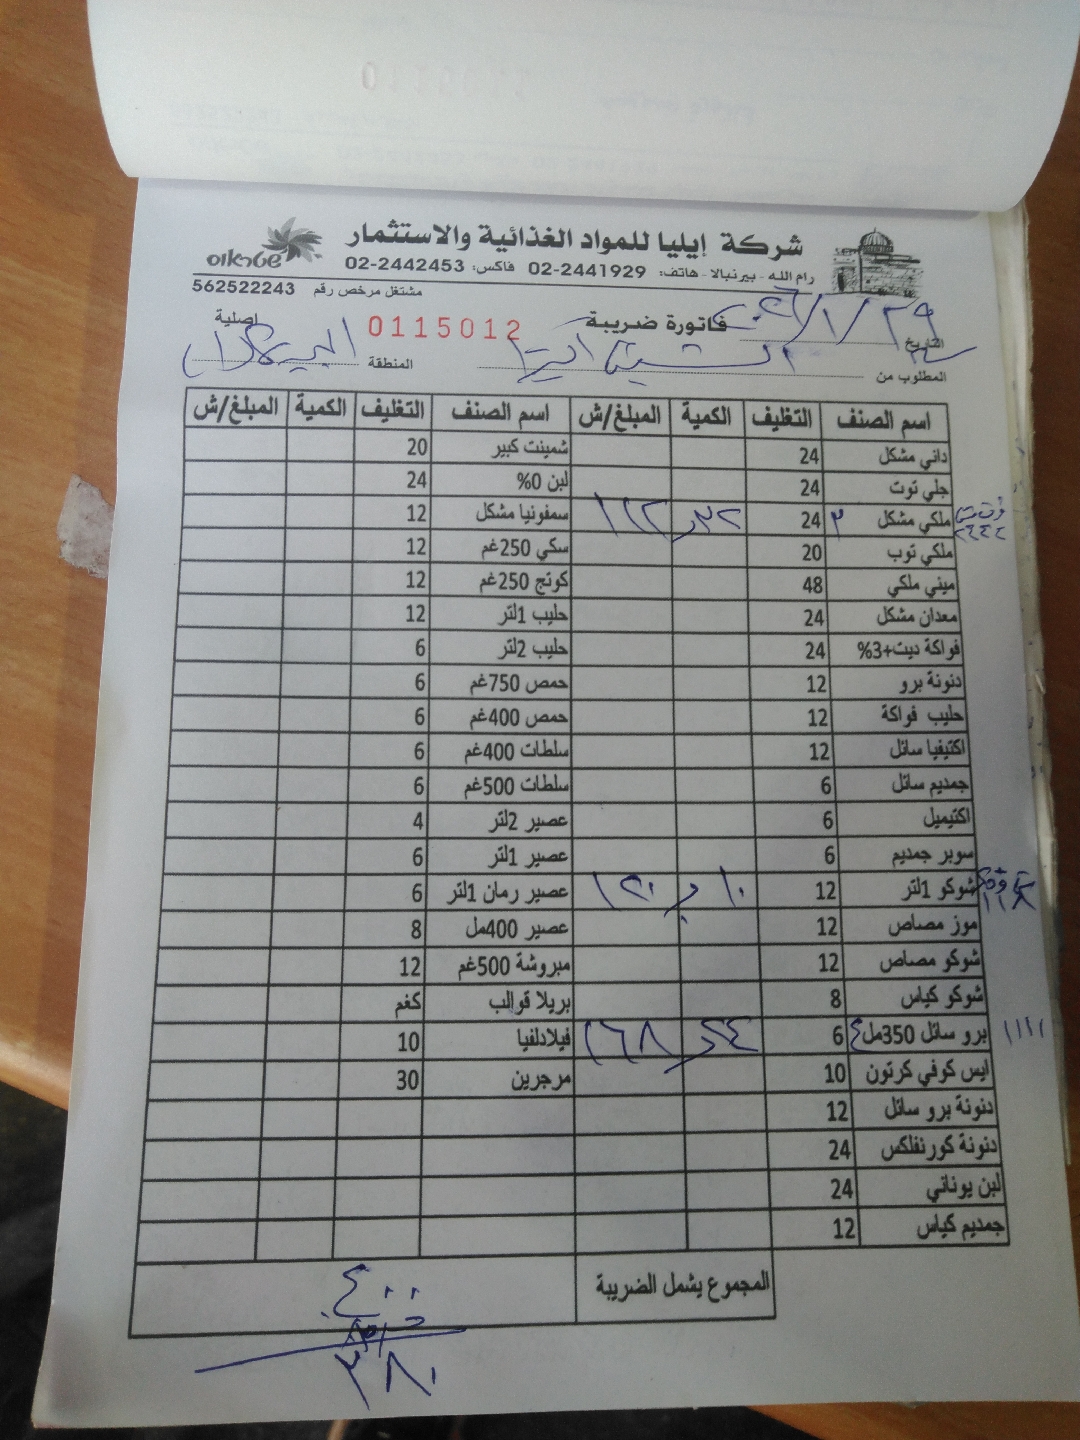 شركة إيليا للمواد الغذائية والاستثمار
رام الله - بيرنبالا - هاتف: 02-2441929 فاكس: 02-2442453
שטראוס
مشتغل مرخص رقم 562522243
فاتورة ضريبة
0115012
اصلية
التاريخ ٢٠٢٦/١/٢٩
المطلوب من
المنطقة
اسم الصنف التغليف الكمية المبلغ/ش اسم الصنف التغليف الكمية المبلغ/ش
داني مشكل 24 شمينت كبير 20
جلي توت 24 لبن 0% 24
ملكي مشكل ٣ 24 ٣٢ ١١٢ سمفونيا مشكل 12
ملكي توب 20 سكي 250غم 12
ميني ملكي 48 كوتج 250غم 12
معدان مشكل 24 حليب 1لتر 12
فواكة ديت+3% 24 حليب 2لتر 6
دنونة برو 12 حمص 750غم 6
حليب فواكة 12 حمص 400غم 6
اكتيفيا سائل 12 سلطات 400غم 6
جمديم سائل 6 سلطات 500غم 6
اكتيميل 6 عصير 2لتر 4
سوبر جمديم 6 عصير 1لتر 6
شوكو 1لتر 12 ١٠ ١٢٠ عصير رمان 1لتر 6
موز مصاص 12 عصير 400مل 8
شوكو مصاص 12 مبروشة 500غم 12
شوكو كياس 8 بريلا قوالب كغم
برو سائل 350مل ٤ 6 ٢٤ ١٦٨ فيلادلفيا 10
ايس كوفي كرتون 10 مرجرين 30
دنونة برو سائل 12
دنونة كورنفلكس 24
لبن يوناني 24
جمديم كياس 12
المجموع يشمل الضريبة ٤٠٠
٣٨٠